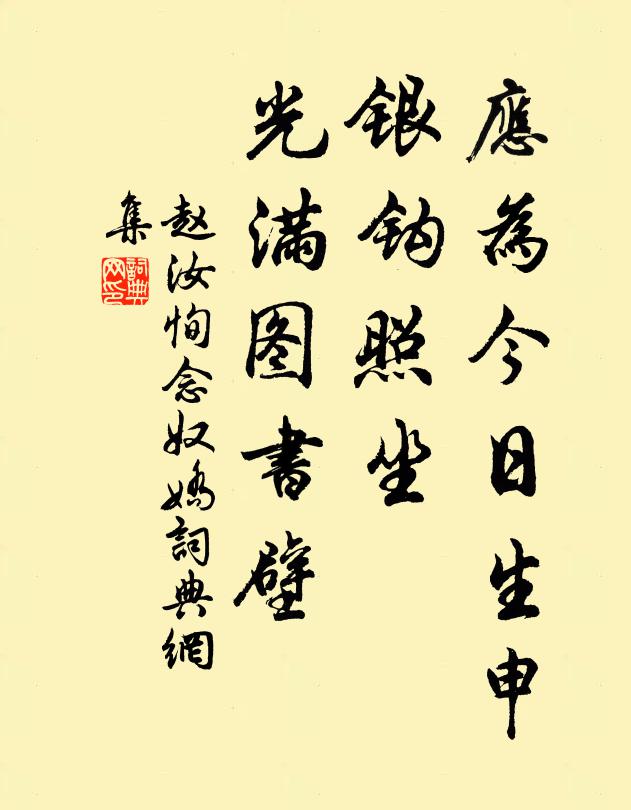 應為今日生申
银钩照坐
光满图書壁
赵汝恂念奴嬌詞典網
集
詞典
网印